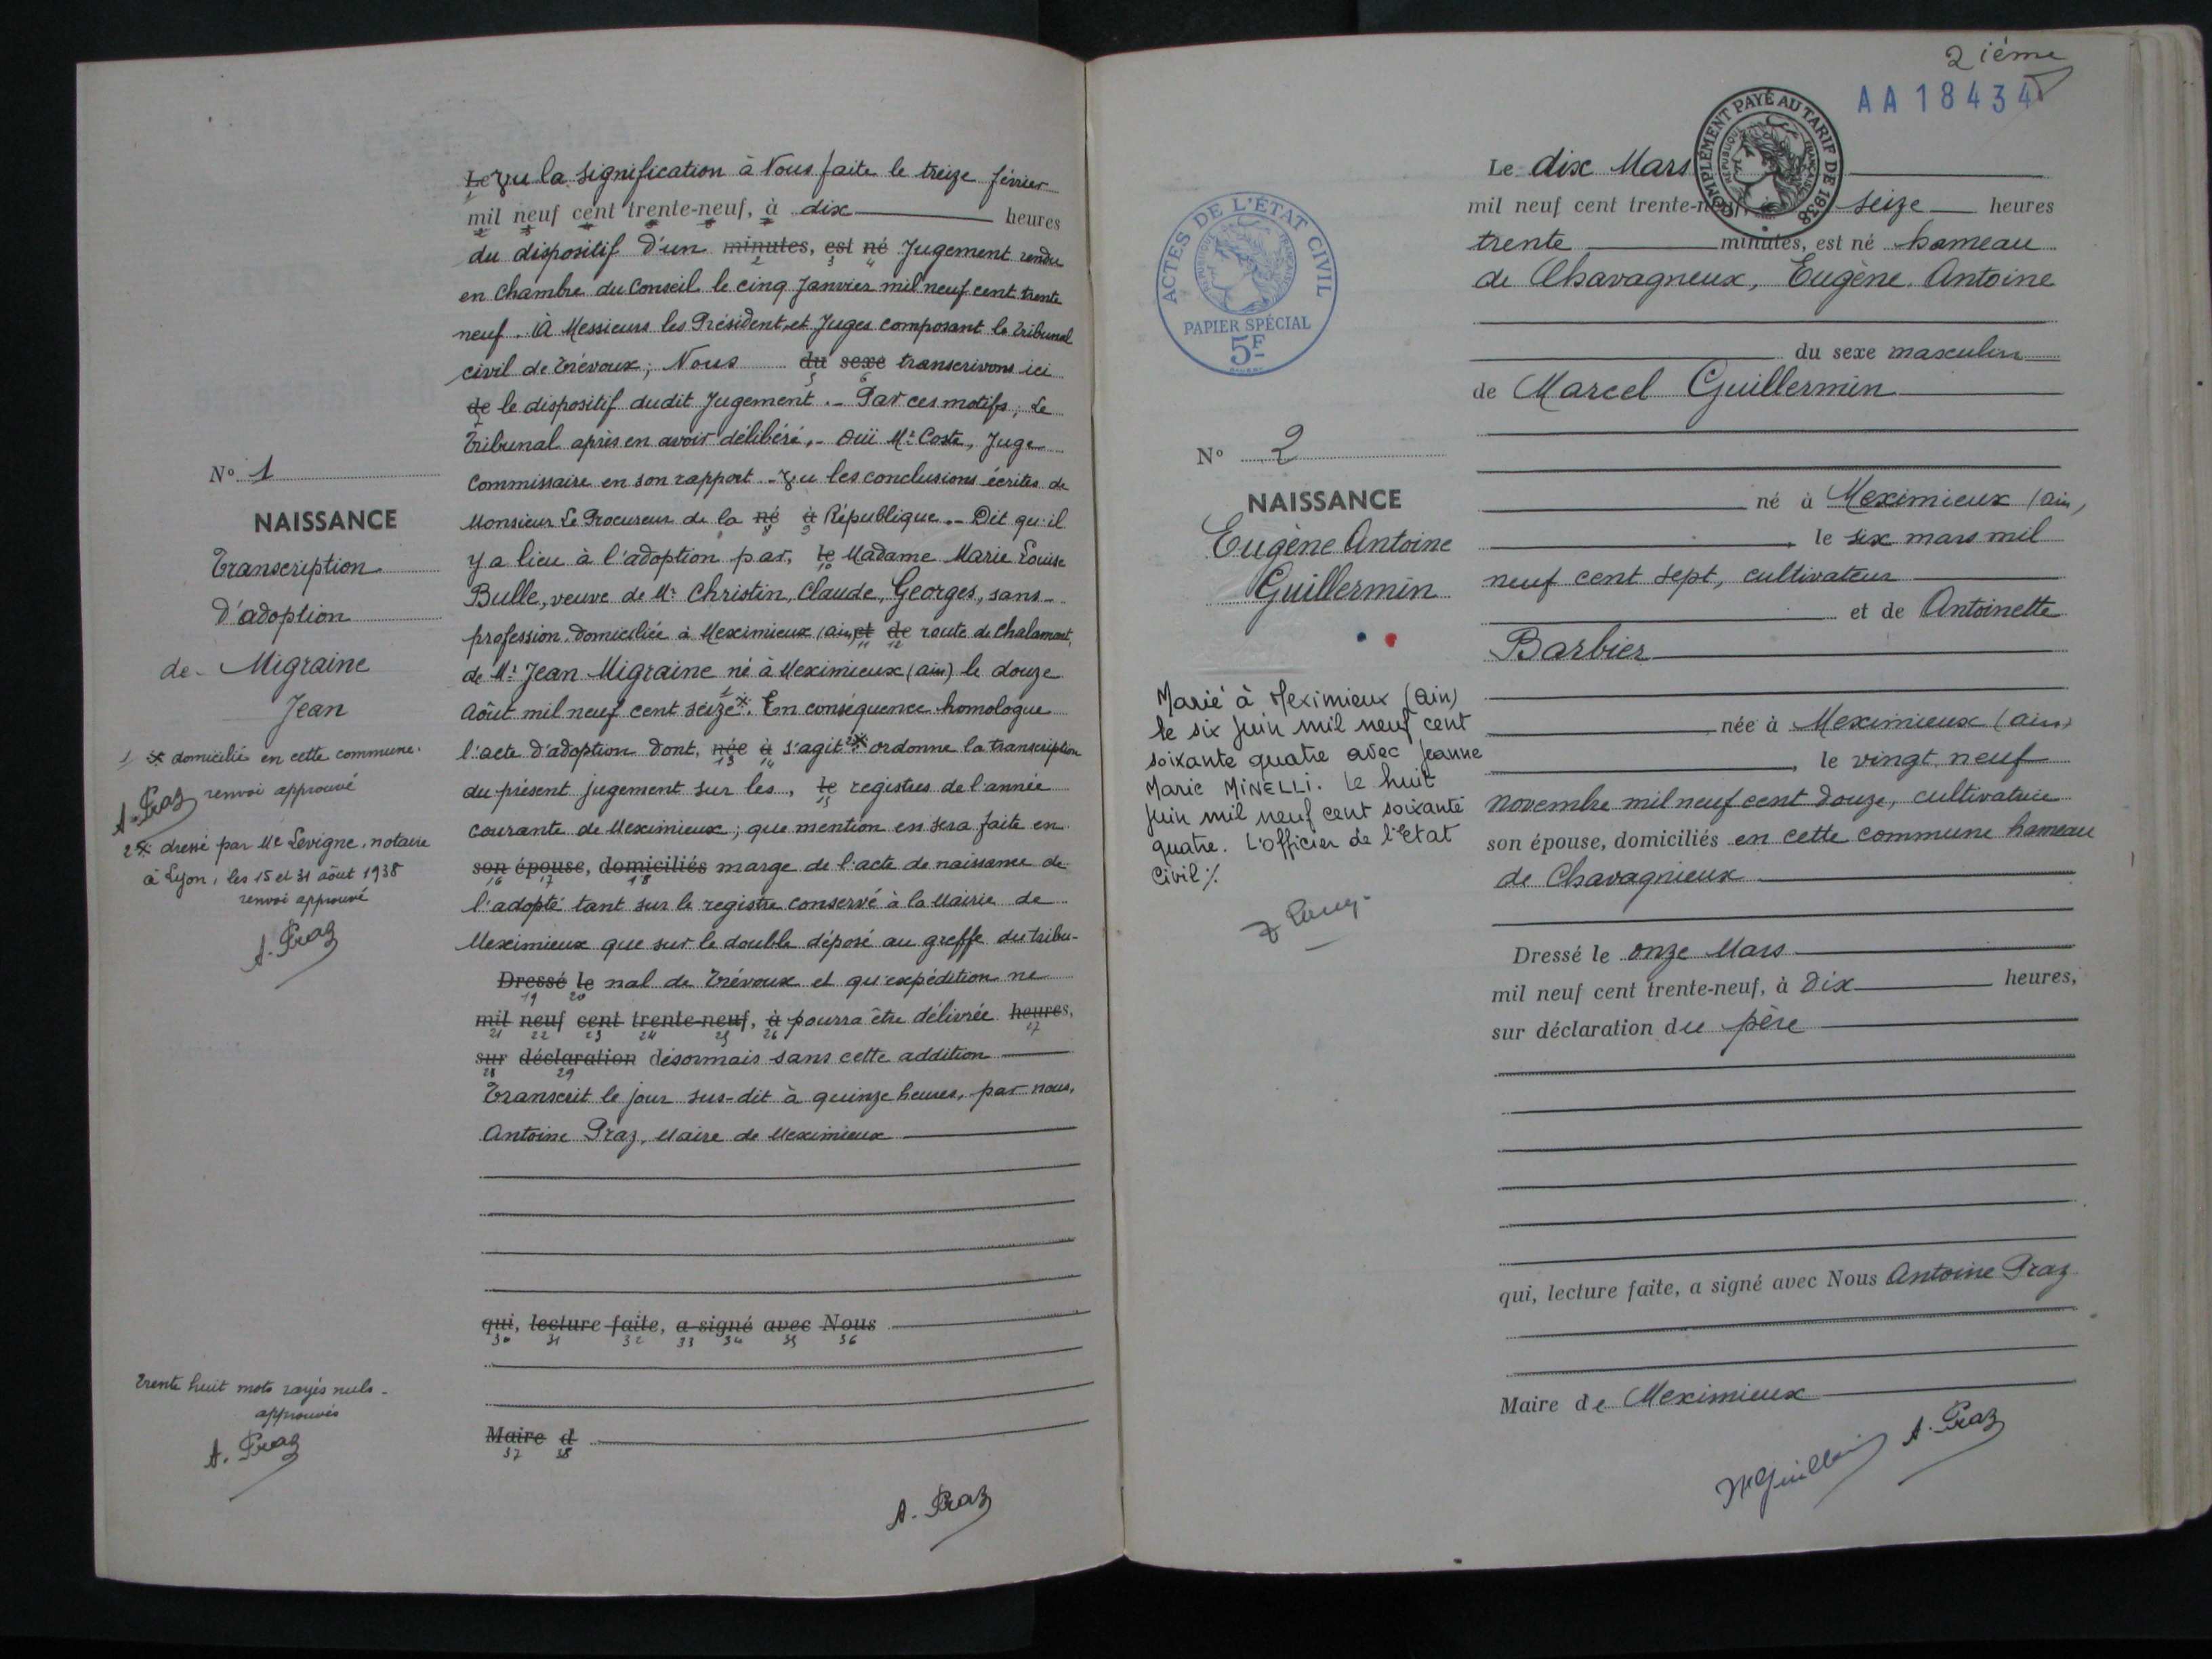 N° 1
NAISSANCE
Transcription
d'adoption
de Migraine
Jean
1/ x domicilié en cette commune.
renvoi approuvé
A. Praz
2x dressé par Me Levigne, notaire
à Lyon, les 15 et 31 août 1938
renvoi approuvé
A. Praz
Trente huit mots rayés nuls -
approuvés
A. Praz
Le Vu la signification à Nous faite le treize février
mil neuf cent trente-neuf, à dix heures
du dispositif d'un minutes, est né Jugement rendu
en Chambre du Conseil le cinq Janvier mil neuf cent trente
neuf. à Messieurs les Président, et Juges composant le Tribunal
civil de Trévoux; Nous du sexe transcrivons ici
de le dispositif dudit Jugement. - Par ces motifs; Le
Tribunal après en avoir délibéré, - Ouï Mr Coste, Juge
Commissaire en son rapport - Vu les conclusions écrites de
Monsieur Le Procureur de la né à République. - Dit qu'il
y a lieu à l'adoption par, le Madame Marie Louise
Bulle, veuve de Mr Christin, Claude, Georges, sans
profession domiciliée à Meximieux (ain) et de route de Chalamont,
de Mr Jean Migraine né à Meximieux (ain) le douze
Août mil neuf cent seize x. En conséquence homologue
l'acte d'adoption dont, née à s'agit 2x ordonne la transcription
du présent jugement sur les, le registres de l'année
courante de Meximieux; que mention en sera faite en
son épouse, domiciliés marge de l'acte de naissance de
l'adopté tant sur le registre conservé à la Mairie de
Meximieux que sur le double déposé au greffe du tribu-
Dressé le nal de Trévoux et qu'expédition ne
mil neuf cent trente-neuf, à pourra être délivrée heures,
sur déclaration désormais sans cette addition
Transcrit le jour sus-dit à quinze heures, par nous,
Antoine Praz, Maire de Meximieux
qui, lecture faite, a signé avec Nous
Maire d
A. Praz
2ième
AA18434
COMPLÉMENT PAYÉ AU TARIF DE 1938
RÉPUBLIQUE FRANÇAISE
ACTES DE L'ÉTAT CIVIL
RÉPUBLIQUE FRANÇAISE
PAPIER SPÉCIAL
5F
N° 2
NAISSANCE
Eugène Antoine
Guillermin
Marié à Meximieux (Ain)
le six juin mil neuf cent
soixante quatre avec Jeanne
Marie MINELLI. Le huit
juin mil neuf cent soixante
quatre. L'officier de l'Etat
Civil ./.
Le dix Mars
mil neuf cent trente-neuf, à seize heures
trente minutes, est né hameau
de Chavagneux, Eugène Antoine
du sexe masculin
de Marcel Guillermin
né à Meximieux (ain)
, le six mars mil
neuf cent sept, cultivateur
et de Antoinette
Barbier
née à Meximieux (ain)
, le vingt neuf
novembre mil neuf cent douze, cultivatrice
son épouse, domiciliés en cette commune hameau
de Chavagnieux
Dressé le onze Mars
mil neuf cent trente-neuf, à dix heures,
sur déclaration du père
qui, lecture faite, a signé avec Nous Antoine Praz
Maire de Meximieux
A. Praz